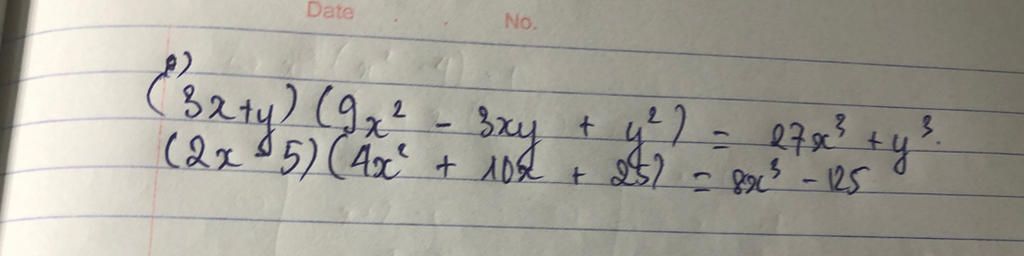 Date . . No.
a)
(3x+y)(9x² - 3xy + y²) = 27x³ + y³.
(2x - 5)(4x² + 10x + 25) = 8x³ - 125